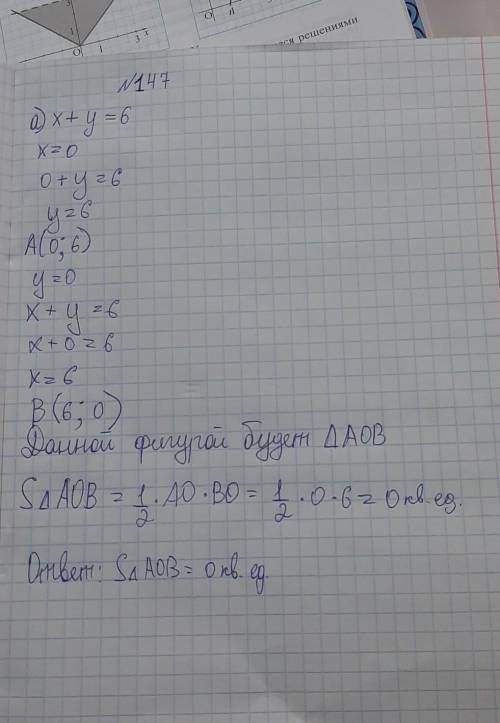 3
1
0 1 3 x
0
ся решениями
№147
а) x + y = 6
x = 0
0 + y = 6
y = 6
A(0; 6)
y = 0
x + y = 6
x + 0 = 6
x = 6
B(6; 0)
Данной фигурой будет △AOB
S△AOB = 1/2 · AO · BO = 1/2 · 0 · 6 = 0 кв. ед.
Ответ: S△AOB = 0 кв. ед.